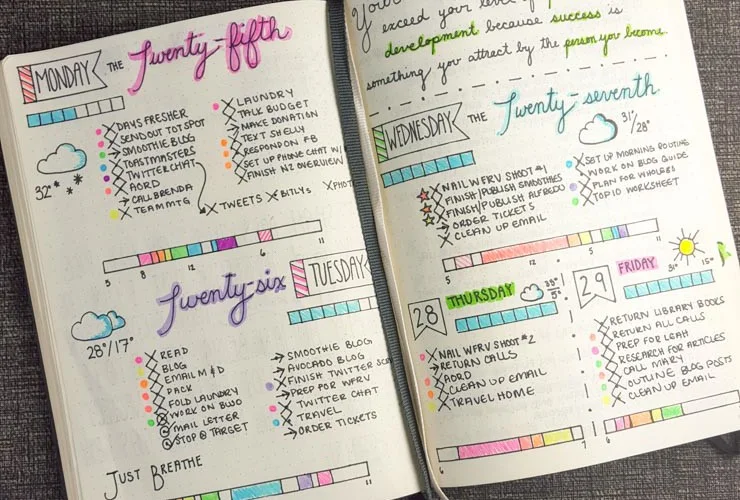 MONDAY THE Twenty-fifth
32°
X DAYS FRESHER
X SENDOUT TOTSPOT
→ SMOOTHIE BLOG
X TOASTMASTERS
X TWITTER CHAT
X AORD
→ CALL BRENDA
X TEAM MTG
X LAUNDRY
X TALK BUDGET
→ MAKE DONATION
X TEXT SHELLY
X RESPOND ON FB
X SET UP PHONE CHAT W/
X FINISH NZ OVERVIEW
X TWEETS X BITLYS X PHOT
5 8 12 6 11
Twenty-six TUESDAY
28°/17°
X READ
X BLOG
X EMAIL M & D
X PACK
X FOLD LAUNDRY
X WORK ON BWO
MAIL LETTER
STOP @ TARGET
→ SMOOTHIE BLOG
→ AVOCADO BLOG
X FINISH TWITTER
→ PREP FOR WFRV
X TWITTER CHAT
X TRAVEL
→ ORDER TICKETS
JUST BREATHE
exceed your level of
development because success is
something you attract by the person you become.
WEDNESDAY THE Twenty-seventh
31°/
28°
X NAIL WFRV SHOOT #1
X FINISH/PUBLISH SMOOTHIES
X FINISH/PUBLISH ALFREDO
→ ORDER TICKETS
X CLEAN UP EMAIL
X SET UP MORNING ROUTINE
X WORK ON BLOG GUIDE
X PLAN FOR WHOLE
X TOP 10 WORKSHEET
5 12 5 11
28 THURSDAY
35°
5°
X NAIL WFRV SHOOT #2
→ RETURN CALLS
X AORD
X CLEAN UP EMAIL
X TRAVEL HOME
6
29 FRIDAY
31° 15°
X RETURN LIBRARY BOOKS
X RETURN ALL CALLS
X PREP FOR LEAH
X RESEARCH FOR ARTICLES
X CALL MARY
X OUTLINE BLOG POSTS
X CLEAN UP EMAIL
6